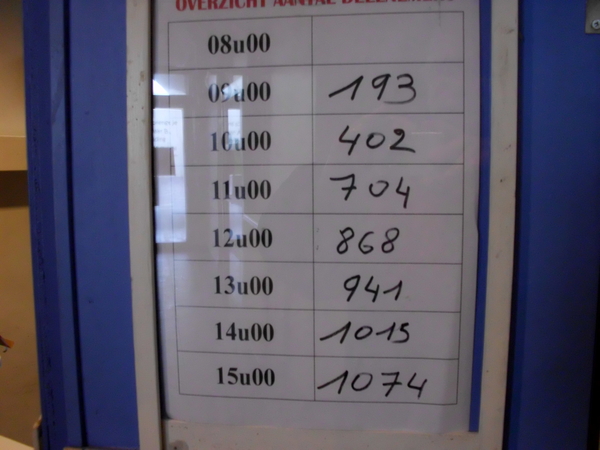 OVERZICHT AANTAL DEELNEMERS
08u00
09u00 193
10u00 402
11u00 704
12u00 868
13u00 941
14u00 1015
15u00 1074